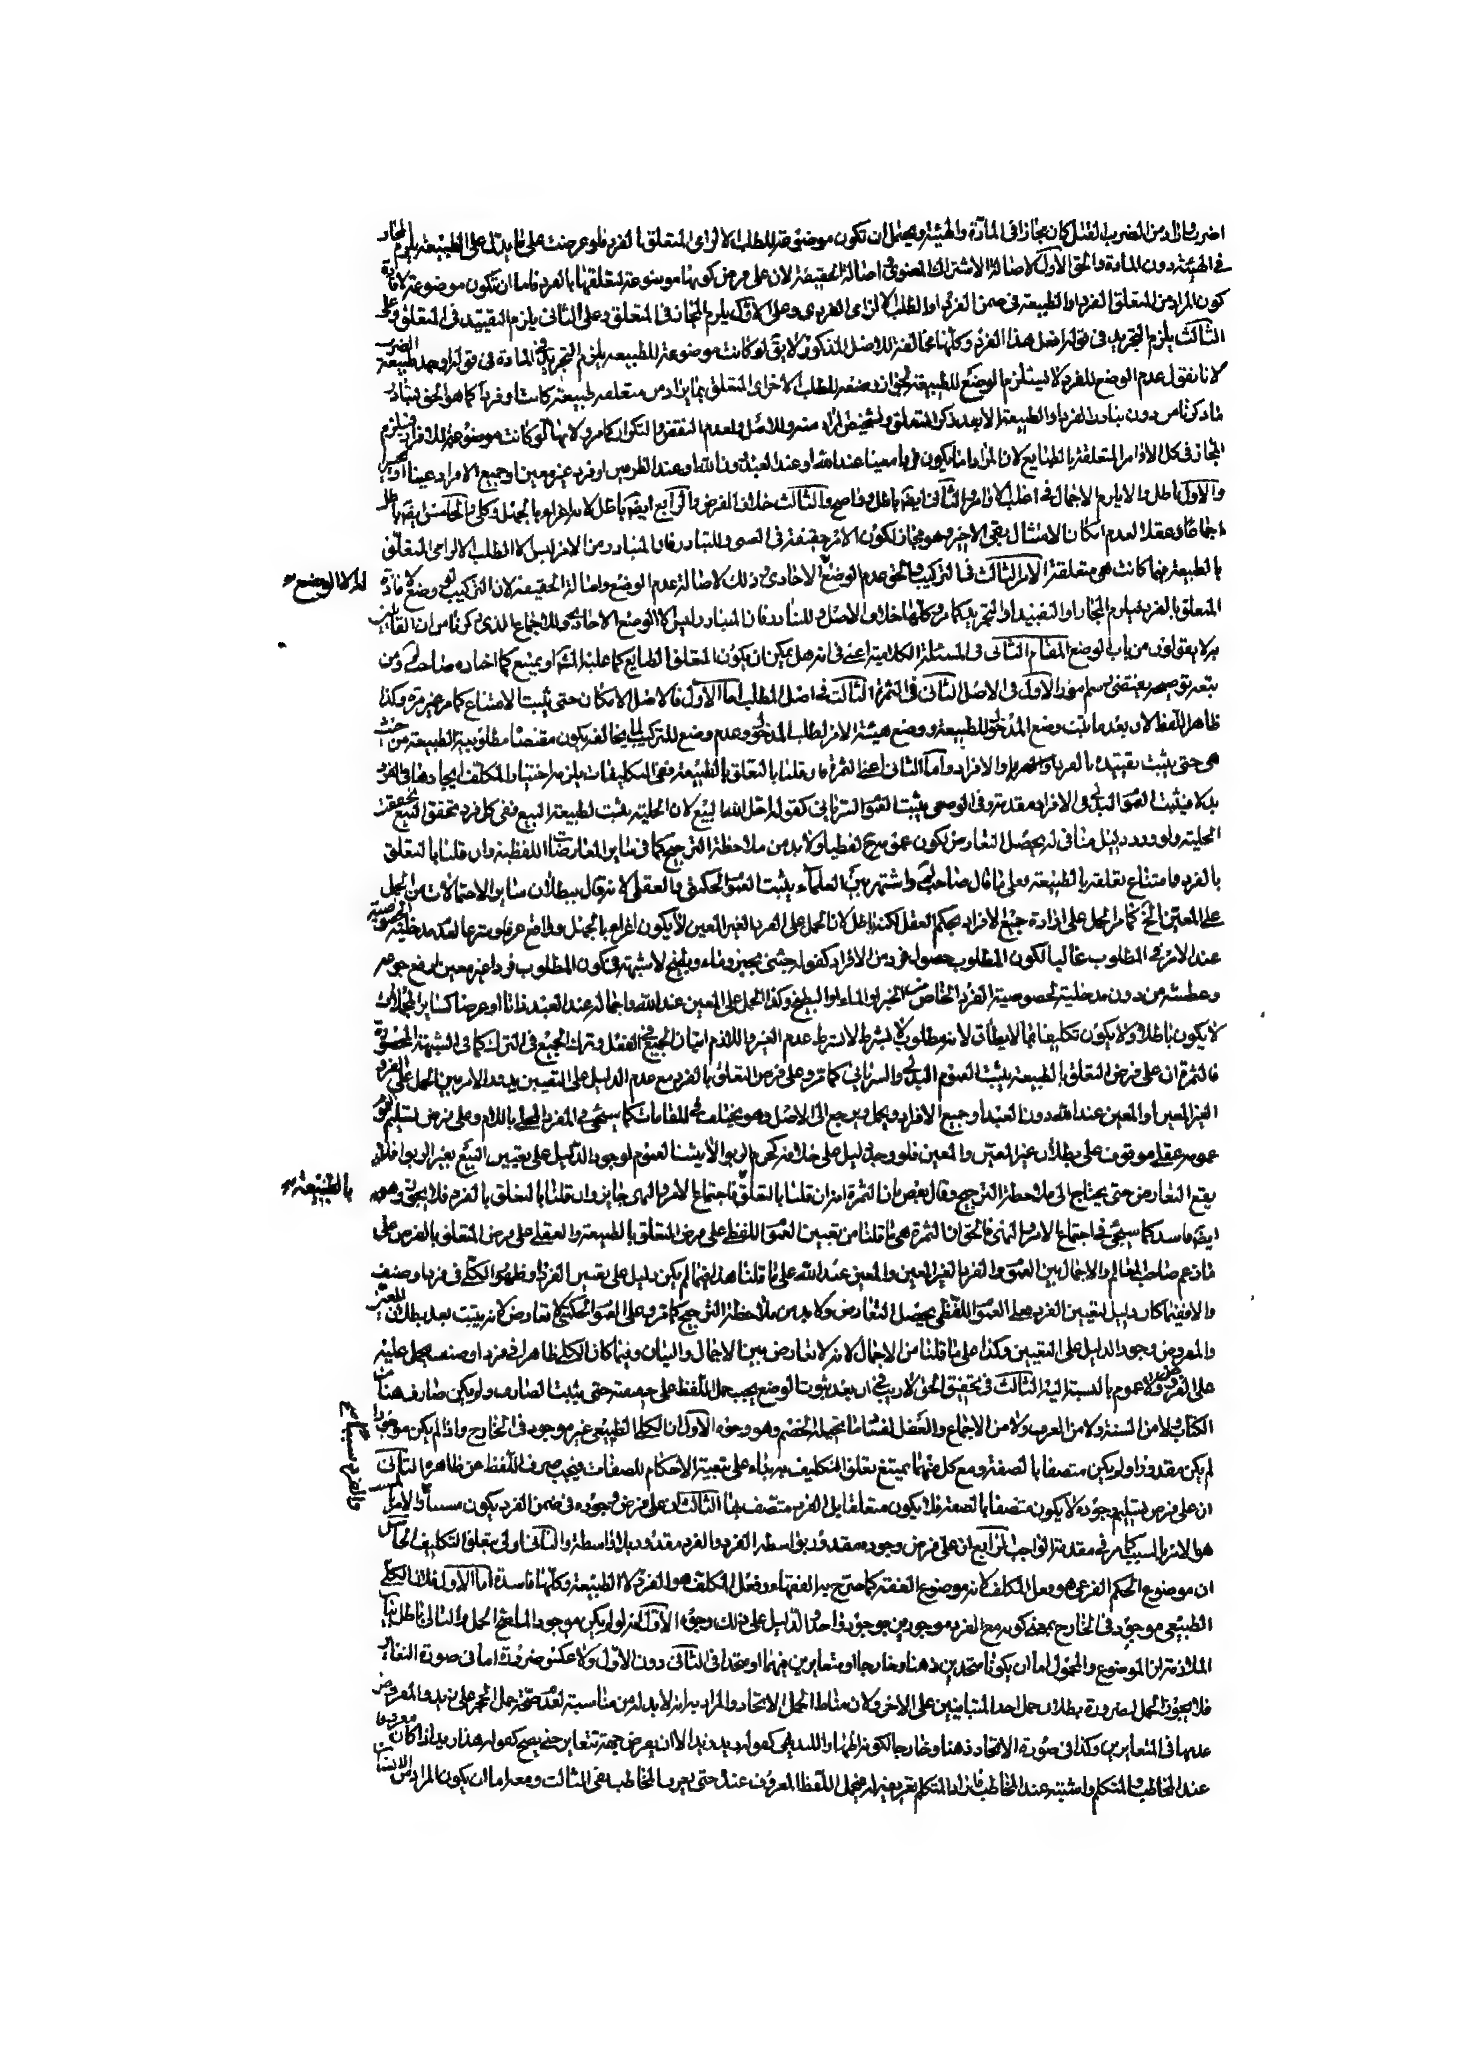 اضرب واراد من الضرب القتل كان مجازا فى المادة والهيئة ويحتمل ان تكون موضوعة للطلب الالزامى المتعلق بالفرد فلو عرضت على ما يدل على الطبيعة يلزم المجاز
فى الهيئة دون المادة والحق الاول لاصالة الاشتراك المعنوى واصالة الحقيقة لان على فرض كونها موضوعة لتعلقها بالفرد فاما ان تكون موضوعة لافادة
كون المراد من المتعلق الفرد او الطبيعة فى ضمن الفرد او الطلب الالزامى الفردى وعلى الاول يلزم المجاز فى المتعلق وعلى الثانى يلزم التقييد فى المتعلق وعلى
الثالث يلزم التجريد فى قوله افعل هذا الفرد وكلها مخالفة للاصل المذكور ولا يق لو كانت موضوعة للطبيعة يلزم التجريد فى المادة فى قوله اوجد طبيعة الضرب
لانا نقول عدم الوضع للفرد لا يستلزم الوضع للطبيعة لجواز وضعه للطلب الالزامى المتعلق بما يراد من متعلقه طبيعة كانت او فردا كما هو الحق لتبادر
ما ذكرنا من دون تبادر الفرد او الطبيعة الا بعد ذكر المتعلق وتشخيص المراد منه وللاصل ولعدم التناقض والتكرار كما مر ولانها لو كانت موضوعة للافراد فيلزم
المجاز فى كل الاوامر المتعلقة بالطبايع لان المراد اما يكون فردا معينا عند الله او عند العبد دون الله او عند الطرفين او فرد غير معين او جميع الافراد عينا او تخييرا
والاول باطل والا يلزم الاجمال فى اغلب الاوامر والثانى ايضا باطل واضح والثالث خلاف الفرض والرابع ايضا باطل لانه اغراء بالجهل وكلى والخامس ايضا باطل
اجماعا وعقلا لعدم امكان الامتثال بقى الاخير وهو مجاز لكون الامر حقيقة فى العينى وللتبادر فان المتبادر من الامر ليس الا الطلب الالزامى المتعلق
بالطبيعة فيما كانت هى متعلقة الامر الثالث فى التركيب والحق عدم الوضع الا لاحادى وذلك لاصالة عدم الوضع واصالة الحقيقة لان التركيب لو وضع لافادة
اذ لا الوضع
المتعلق بالفرد فيلزم المجاز او التقييد او التجريد كما مر وكلها خلاف الاصل وللتبادر فان المتبادر ليس الا الوضع الاحادى وللاجماع الذى ذكرنا من ان القائلين
به لا يقولون من باب الوضع المقام الثانى فى المسئلة الكلامية اعنى فى انه هل يمكن ان يكون المتعلق الطبايع كما عليه المش او يمتنع كما اختاره صاحب لم ومن
تبعه توضيحه يقتضى رسم امور الاول فى الاصل الثانى فى الثمرة الثالث فى اصل المطلب اما الاول فالاصل الامكان حتى يثبت الامتناع كما مر غير مرة وكذا
ظاهر اللفظ لانه بعد ما ثبت وضع المدخول للطبيعة ووضع هيئة الامر لطلب المدخول وعدم وضع للتركيب لما يخالفه يكون مقتضاها مطلوبية الطبيعة من حيث
هى حتى يثبت تقييده بالفرد او الافراد واما الثانى اعنى الثمرة فان قلنا بالتعلق بالطبيعة ففى التكليفات يلزمه اختيار المكلف ايجادها فى الفرد
بدلا فيثبت العموم البدلى فى الافراد مقدمة وفى الوضعى يثبت العموم السريانى كقوله احل الله البيع لان الحلية يثبت لطبيعة البيع ففى كل فرد تحقق البيع تحققت
الحلية ولو ورد دليل منافى له يحصل التعارض لكون عمومه لفظيا ولا بد من ملاحظة الترجيح كما فى ساير المعارضات اللفظية وان قلنا بالتعلق
بالفرد فامتناع تعلقه بالطبيعة وعلى ما قال صاحب لم واشتهر بين العلماء يثبت العموم الحكمى والعقلى لانه قال ببطلان ساير الاحتمالات من الحمل
على المعين الخ كما مر الحمل على ارادة جميع الافراد بحكم العقل لكنه باطل لان الحمل على الفرد الغير المعين لا يكون اغراء بالجهل وواقع عرفا وشرعا لعدم مدخلية الخصوصية
عند الامر فى المطلوب غالبا لكون المطلوب حصول فرد من الافراد كقوله جئنى بخبز وماء وبطيخ لا شبهة فى كون المطلوب فردا غير معين لرفع جوعه
وعطشه من دون مدخلية لخصوصية الفرد الخاص من الخبز او الماء او البطيخ وكذا الحمل على المعين عند الله واجماله عند العبد ذاتا او عرضا كساير المجملات
لا يكون باطلا ولا يكون تكليفا بما لا يطاق لانه مطلوب لا بشرط لا بشرط عدم الغير واللازم اتيان الجميع فى الفعل وترك الجميع فى الترك كما فى الشبهة المحصورة
فالثمرة ان على فرض التعلق بالطبيعة يثبت العموم البدلى والسريانى كما مر وعلى فرض التعلق بالفرد مع عدم الدليل على التعيين يدور الامر بين الحمل على الفرد
الغير المعين او المعين عند الله دون العبد او جميع الافراد ويحمل ويرجع الى الاصل وهو يختلف فى المقامات كما سيجئ فى المفرد المحلى باللام وعلى فرض تسليم العموم
عمومه عقلى موقوف على بطلان غير المعين والمعين فلو وجد دليل على خلافه كحرم الربوا لا يثبت العموم لوجود الدليل على تعيين البيع بغير الربوا فلا
يقع التعارض حتى يحتاج الى ملاحظة الترجيح وقال بعض بان الثمرة انه ان قلنا بالتعلق فاجتماع الامر والنهى جايز وان قلنا بالتعلق بالفرد فلا يجوز وهو
بالطبيعة
ايضا فاسد كما سيجئ فى اجتماع الامر والنهى فالحق ان الثمرة هى ما قلنا من تعيين العموم اللفظى على فرض التعلق بالطبيعة والعقلى على فرض التعلق بالفرد على
ما زعم صاحب المعالم والاجمال بين العموم والفرد الغير المعين والمعين عند الله على ما قلنا هذا فيما لم يكن دليل على تعيين الفرد او ظهور الكلى فى فرد او صنف
والا ففيما كان دليل لتعيين الفرد فعلى العموم اللفظى يحصل التعارض ولا بد من ملاحظة الترجيح كما مر وعلى العموم الحكمتى لا تعارض لانه يثبت بعد بطلان المعين
والمفروض وجود الدليل على التعيين وكذا على ما قلنا من الاجمال لانه لا تعارض بين الاجمال والبيان وفيما كان الكلى ظاهرا فى فرد او صنف يحمل عليه
على الفرض ولا عموم بالنسبة اليه الثالث فى تحقيق الحق لا ريب فى ان بعد ثبوت الوضع يجب حمل اللفظ على حقيقته حتى يثبت الصارف ولم يكن صارف هنا من
الكتاب ولا من السنة ولا من العرف ولا من الاجماع والعقل لفساد ما تخيله الخصم وهو وجوه الاول ان الكلى الطبيعى غير موجود فى الخارج واذا لم يكن موجودا
لم يكن مقدورا ولم يكن متصفا بالصفة ومع كل منهما يمتنع تعلق التكليف به بناء على تبعية الاحكام للصفات ويجب صرف اللفظ عن ظاهره الثانى
ان على فرض تسليم وجوده لا يكون متصفا بالصفة فلا يكون متعلقا بل الفرد متصف بها الثالث ان على فرض وجوده فى ضمن الفرد يكون مسببا والامر بالمسبب
والفرد سببا
هو الامر بالسبب كما مر فى مقدمة الواجب الرابع ان على فرض وجوده مقدور بواسطة الفرد والفرد مقدور بلا واسطة والثانى اولى بتعلق التكليف الخامس
ان موضوع الحكم الفرعى هو فعل المكلف لانه موضوع الفقه كما صرح به الفقهاء وفعل المكلف هو الفرد لا الطبيعة وكلها فاسدة اما الاول فلان الكلى
الطبيعى موجود فى الخارج بمعنى كونه مع الفرد موجودين بوجود واحد والدليل على ذلك وجوه الاول انه لو لم يكن موجودا لما صح الحمل والتالى باطل بيان
الملازمة ان الموضوع والمحمول اما ان يكونا متحدين ذهنا وخارجا او متغايرين فيهما او متحدا فى الثانى دون الاول ولا عكس ضرورة اما فى صورة التغاير
فلا يجوز الحمل لضرورة بطلان حمل احد المتباينين على الاخر ولان مناط الحمل الاتحاد والمراد به انه لابد له من مناسبة لعدم صحة حمل الحجر على زيد والمفروض
عدمها فى المتغايرين وكذا فى صورة الاتحاد ذهنا وخارجا لكونه الا ان يفرض جهة تغاير حتى يصح كقوله هذا زيد اذا كان معروفا
عند المخاطب والمتكلم واشتبه عند المخاطب فاراد المتكلم تعريفه له فيحمل اللفظ المعروف عنده حتى يعرف المخاطب بقى الثالث ومعه اما ان يكون المراد من الاتحاد